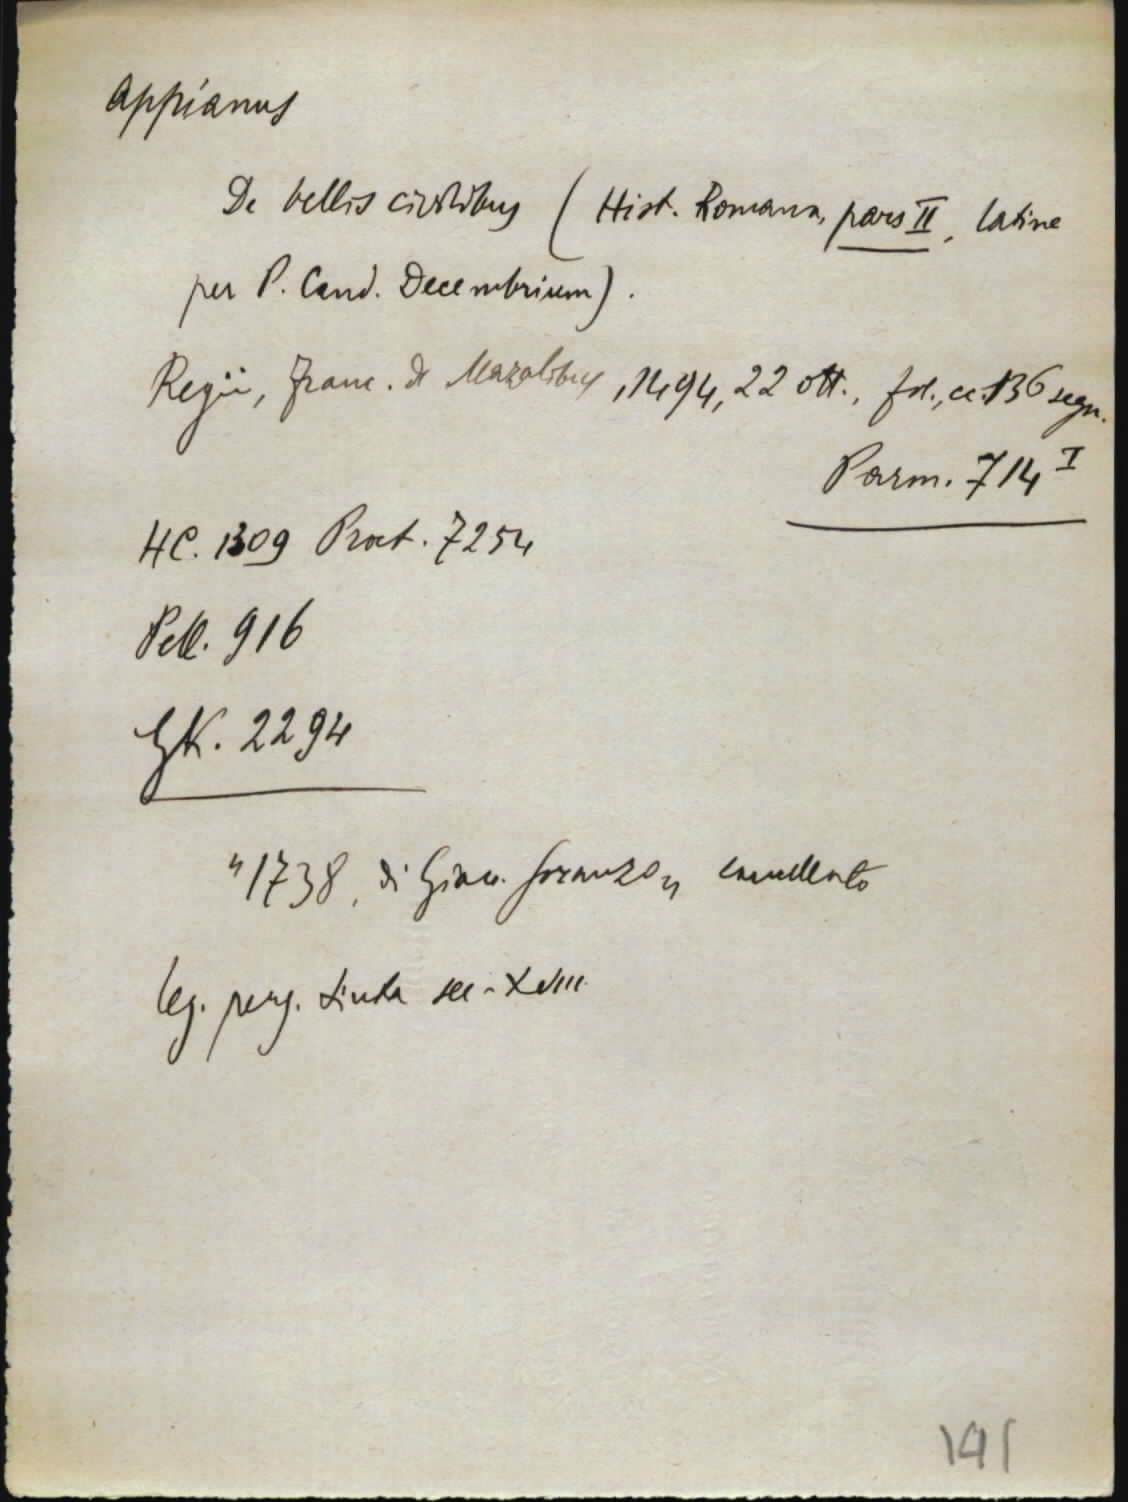 Appianus
De bellis civilibus (Hist. Romana, pars II, latine
per P. Cand. Decembrium).
Regii, Franc. de Mazalibus, 1494, 22 ott., fol., cc. 136 segn.
Parm. 714 I
HC. 1309 Proct. 7254
Pell. 916
GK. 2294
"1738, di Giac. Soranzo" cancellato
leg. perg. tinta sec. XVIII
191